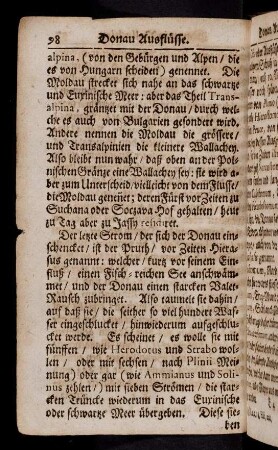 98 Donau Ausflüsse.
alpina. (von den Gebürgen und Alpen / die
es von Hungarn scheiden) genennet. Die
Moldau strecket sich nahe an das schwartze
und Euxinische Meer: aber das Theil Trans-
alpina, gräntzet mit der Donau / durch wel-
che es auch von Bulgarien gesondert wird.
Andere nennen die Moldau die grössere /
und Transalpinien die kleinere Wallachey.
Also bleibt nun wahr / daß oben an der Pol-
nischen Gränze eine Wallachey sey: sie wird a-
ber zum Unterscheid / vielleicht von dem Flusse /
die Moldau genennet; deren Fürst vor Zeiten zu
Suchana oder Soczava Hof gehalten / heut
zu Tag aber zu Jassy residiret.
Der letzte Strom / der sich der Donau ein-
schencket / ist der Pruth / vor Zeiten Hiera-
sus genannt: welcher / kurtz vor seinem Ein-
fluß / einen Fisch-reichen See anschwäm-
met / und der Donau einen starcken Valet-
Rausch zubringet. Also taumelt sie dahin /
auf daß sie / die seither so viel hundert Was-
ser eingeschlucket / hinwiederum aufgeschlu-
cket werde. Es scheinet / es wolle sie mit
fünffen / wie Herodotus und Strabo wol-
len / oder mit sechsen / nach Plinii Mei-
nung) oder gar (wie Ammianus und Soli-
nus zehlen /) mit sieben Strömen / die star-
cken Trüncke wiederum in das Euxinische
oder schwartze Meer übergeben. Diese sie-
ben